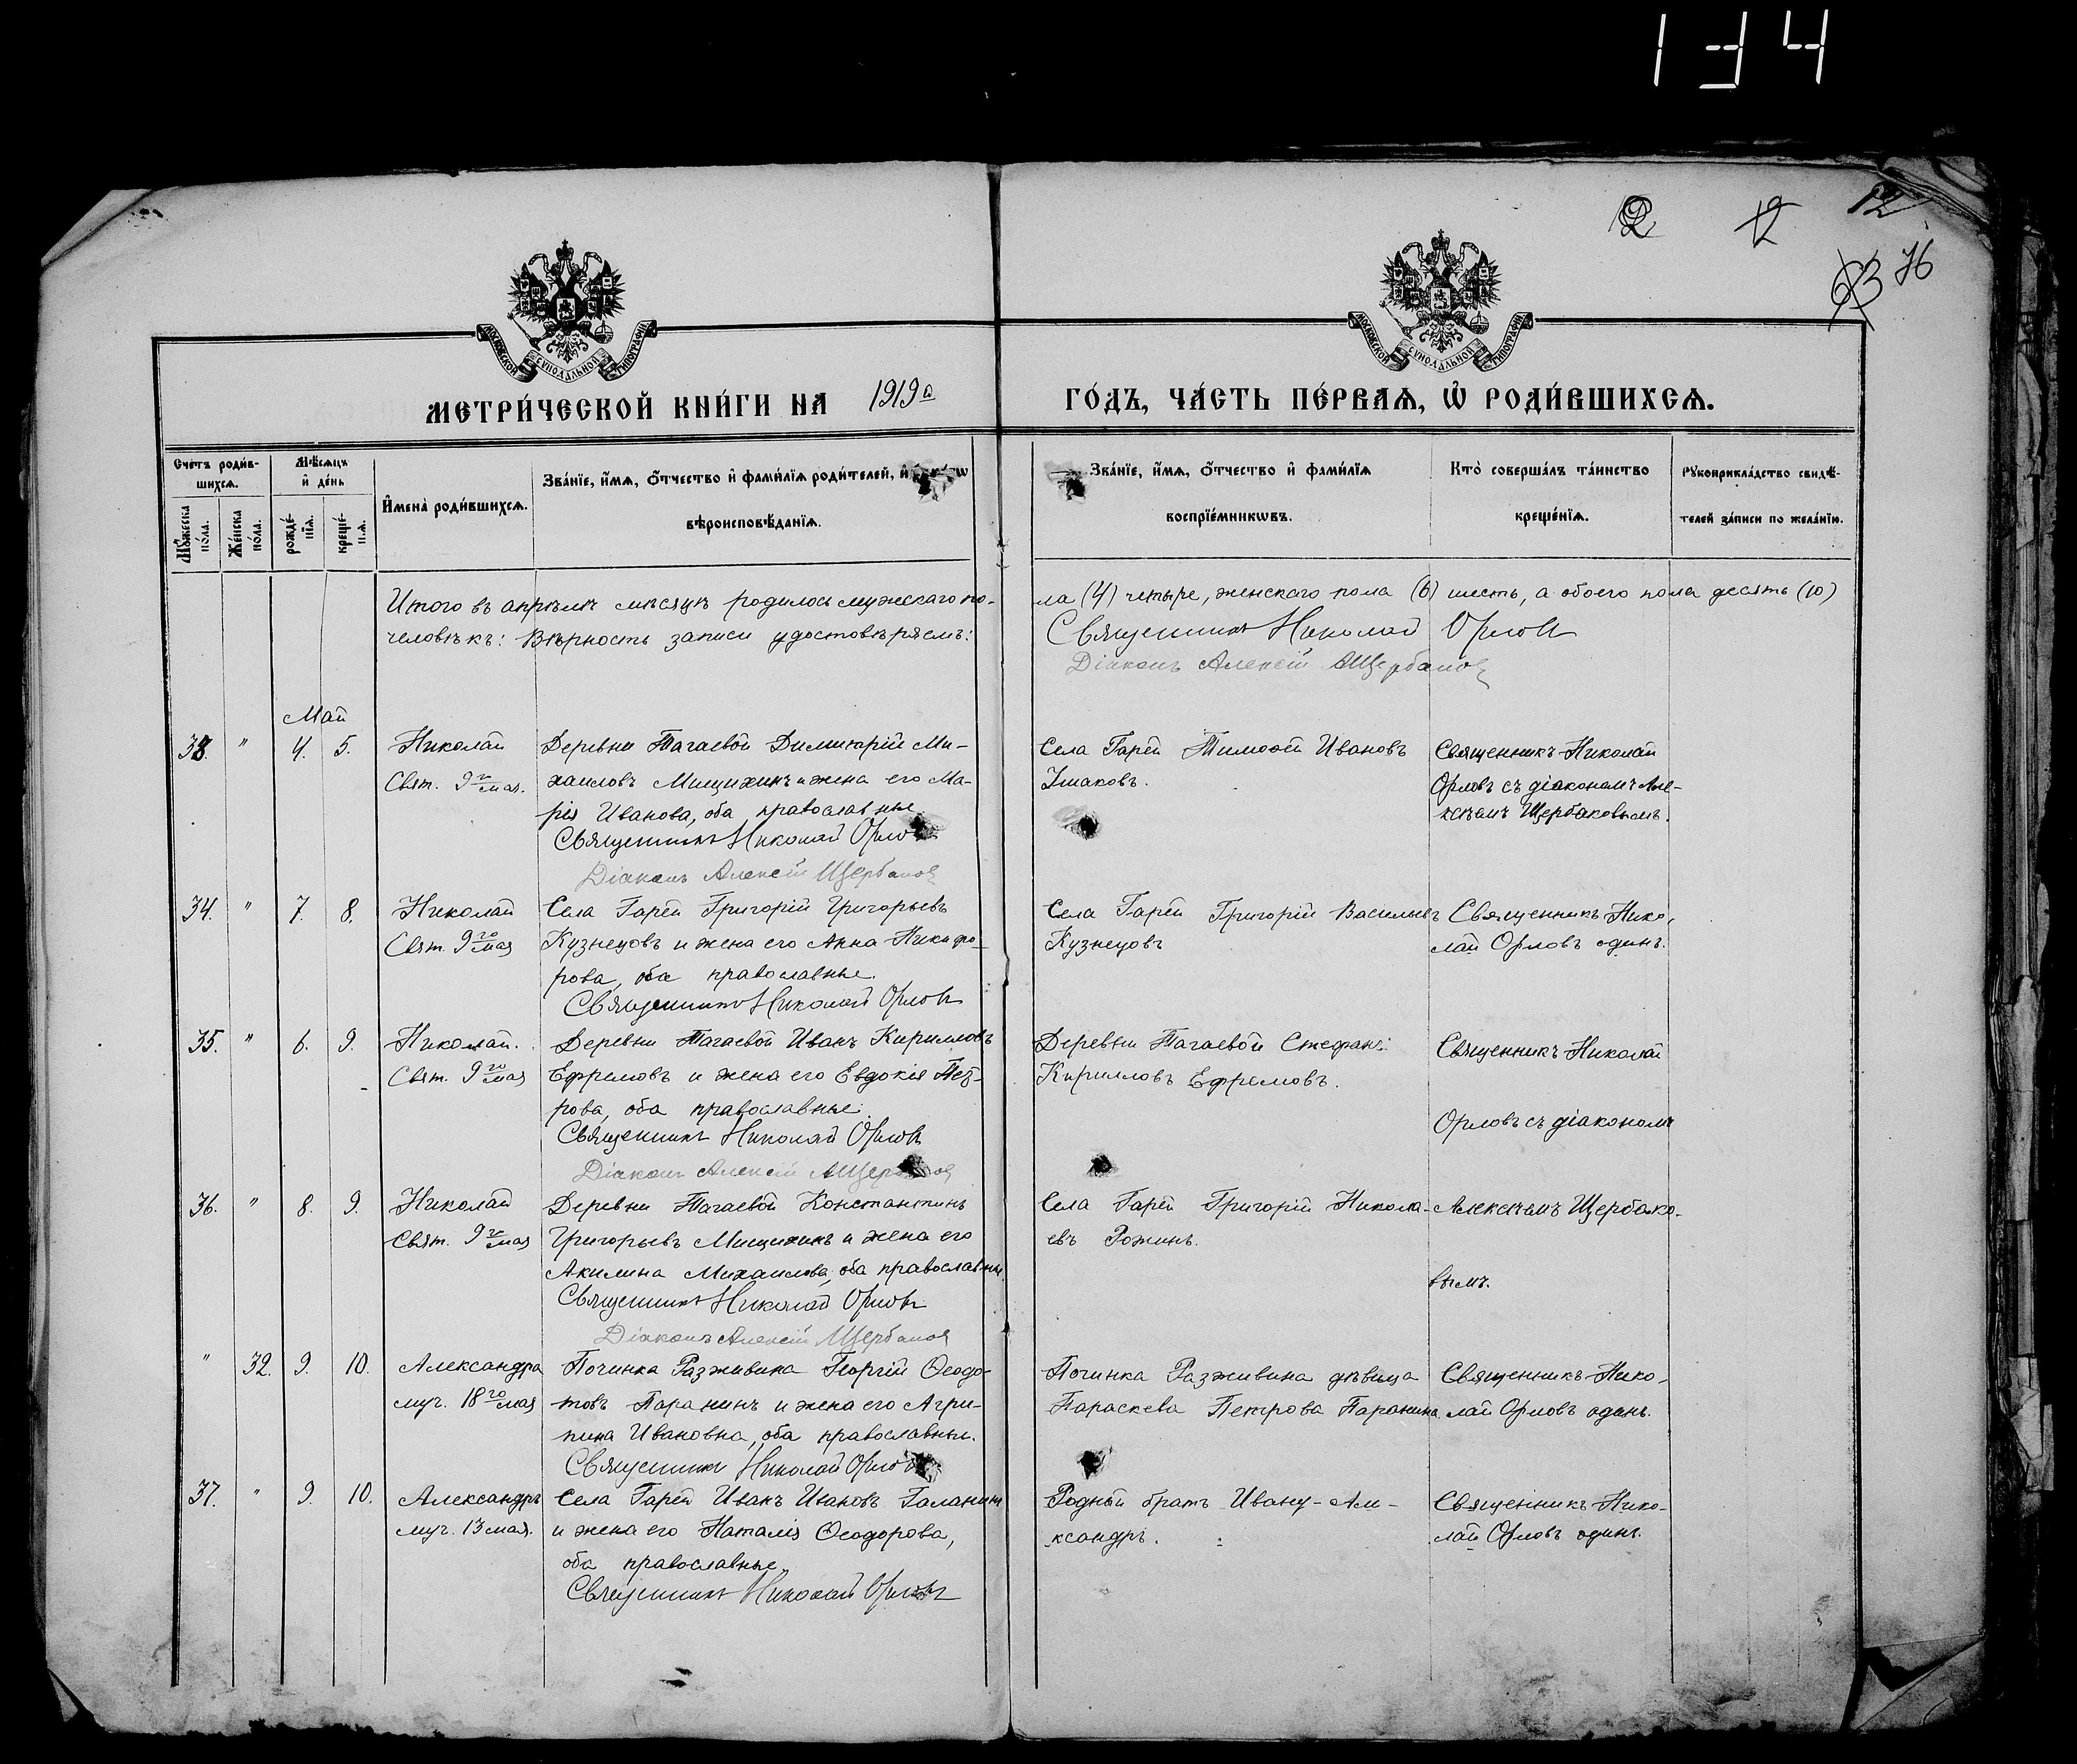 134
2 12 12
63 76
МОСКОВСКОЙ СѴНОДАЛЬНОЙ ТИПОГРАФІИ
МОСКОВСКОЙ СѴНОДАЛЬНОЙ ТИПОГРАФІИ
МЕТРИ́ЧЕСКОЙ КНИ́ГИ НА 1919й ГО́ДЪ, ЧА́СТЬ ПЕ́РВАѦ, Ѡ҆ РОДИ́ВШИХСѦ.
Сче́тъ роди́в-
шихсѧ.
Мѣ́сѧцъ
и҆ де́нь
Мꙋ́жеска
по́ла.
Же́нска
по́ла.
рожде́-
нїѧ.
креще́-
нїѧ.
И҆мена̀ роди́вшихсѧ.
Зва́нїе, и҆́мѧ, ѻ҆́тчество и҆ фами́лїѧ роди́телей, и҆
вѣроисповѣ́данїѧ.
Зва́нїе, и҆́мѧ, ѻ҆́тчество и҆ фами́лїѧ
воспрїе́мникѡвъ.
Кто̀ соверша́лъ та́инство
креще́нїѧ.
Рꙋкоприкла́дство свидѣ́-
телей за́писи по жела́нїю.
Итого въ апрѣлѣ мѣсяцѣ родилось мужескаго по-
ла (4) четыре, женскаго пола (6) шесть, а обоего пола десять (10)
человѣкъ: Вѣрность записи удостовѣряемъ:
Священникъ Николай Орловъ
Діаконъ Алексій Щербаков
Май
33. " 4. 5.
Николай
Свят. 9го мая.
Деревни Тагаевой Димитрій Ми-
хаиловъ Мищихинъ и жена его Ма-
рія Иванова, оба православные.
Священникъ Николай Орло
Діаконъ Алексій Щербаков
Села Гарей Тимоѳей Ивановъ
Ушаковъ.
Священникъ Николай
Орловъ съ діакономъ Але-
ксѣемъ Щербаковымъ.
34. " 7. 8.
Николай
Свят. 9го мая
Села Гарей Григорій Григорьевъ
Кузнецовъ и жена его Анна Никифо-
рова, оба православные.
Священникъ Николай Орловъ
Села Гарей Григорій Васильевъ
Кузнецовъ
Священникъ Нико-
лай Орловъ одинъ.
35. " 6. 9.
Николай.
Свят. 9го мая
Деревни Тагаевой Иванъ Кирилловъ
Ефремовъ и жена его Евдокія Пет-
рова, оба православные.
Священникъ Николай Орловъ
Діаконъ Алексій
Деревни Тагаевой Стефанъ
Кирилловъ Ефремовъ.
Священникъ Николай
Орловъ съ діакономъ
36. " 8. 9.
Николай
Свят. 9го мая
Деревни Тагаевой Константинъ
Григорьевъ Мищихинъ и жена его
Акилина Михаилова, оба православные.
Священникъ Николай Орловъ
Діаконъ Алексій Щербаков
Села Гарей Григорій Никола-
евъ Рожинъ.
Алексѣемъ Щербако-
вымъ.
" 32. 9. 10.
Александра
муч. 18го мая
Починка Разживина Георгій Ѳеодо-
товъ Паранинъ и жена его Агри-
пина Ивановна, оба православные.
Священникъ Николай Орлов
Починка Разживина дѣвица
Параскева Петрова Паранина
Священникъ Нико-
лай Орловъ одинъ.
37. " 9. 10.
Александръ
муч. 13 мая.
Села Гарей Иванъ Ивановъ Галанинъ
и жена его Наталія Ѳеодорова,
оба православные.
Священникъ Николай Орловъ
Родной братъ Ивану - Але-
ксандръ.
Священникъ Нико-
лай Орловъ одинъ.